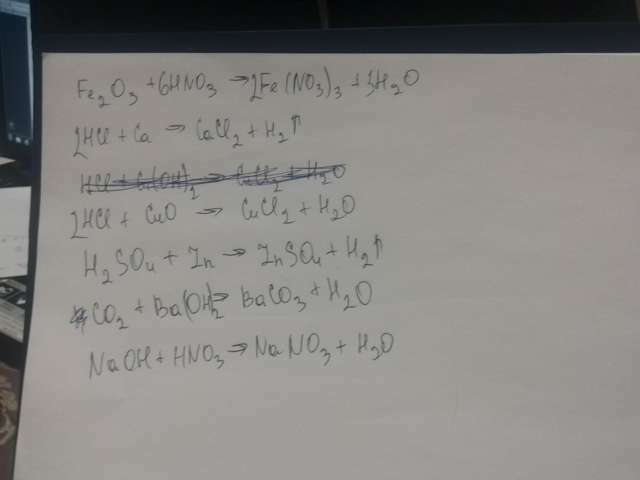 Fe₂O₃ + 6HNO₃ → 2Fe(NO₃)₃ + 3H₂O
2HCl + Ca → CaCl₂ + H₂↑
2HCl + CuO → CuCl₂ + H₂O
H₂SO₄ + Zn → ZnSO₄ + H₂↑
CO₂ + Ba(OH)₂ → BaCO₃ + H₂O
NaOH + HNO₃ → NaNO₃ + H₂O